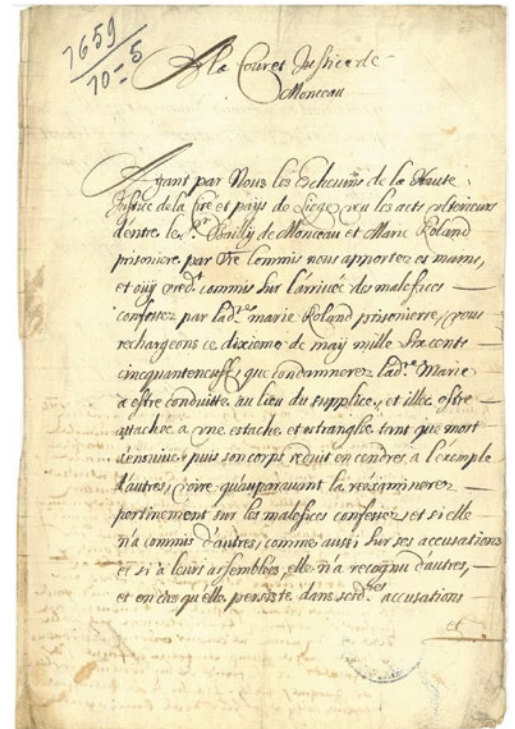 1659
10=5
A la Cour et Justice de
Monceau
Ayant par Nous les Eschevins de la Haute
Justice de la Cité et pays de Liege, veu les acts ulterieurs
d'entre le Sr Bailly de Monceau et Marie Roland
prisoniere par vre Commis nous apportez es mains,
et oüÿ vredt commis sur l'arrivée des malefices
confessez par ladte marie Roland prisonierre, vous
rechargeons ce dixieme de may mille six cents
cincquanteneuff, que condamnerez ladte Marie
a estre conduitte au lieu du supplice, et illec estre
attachee a une estache et estranglée tant que mort
s'ensuive, puis son corps reduit en cendres a l'exemple
d'autres, voire qu'auparavant la reexaminerez
pertinement sur les malefices confessez, et si elle
n'a commis d'autres, comme aussi sur ses accusations
et si a leurs assemblées, elle n'a recognu d'autres,
et en cas qu'elle persiste dans sesdtes accusations
et